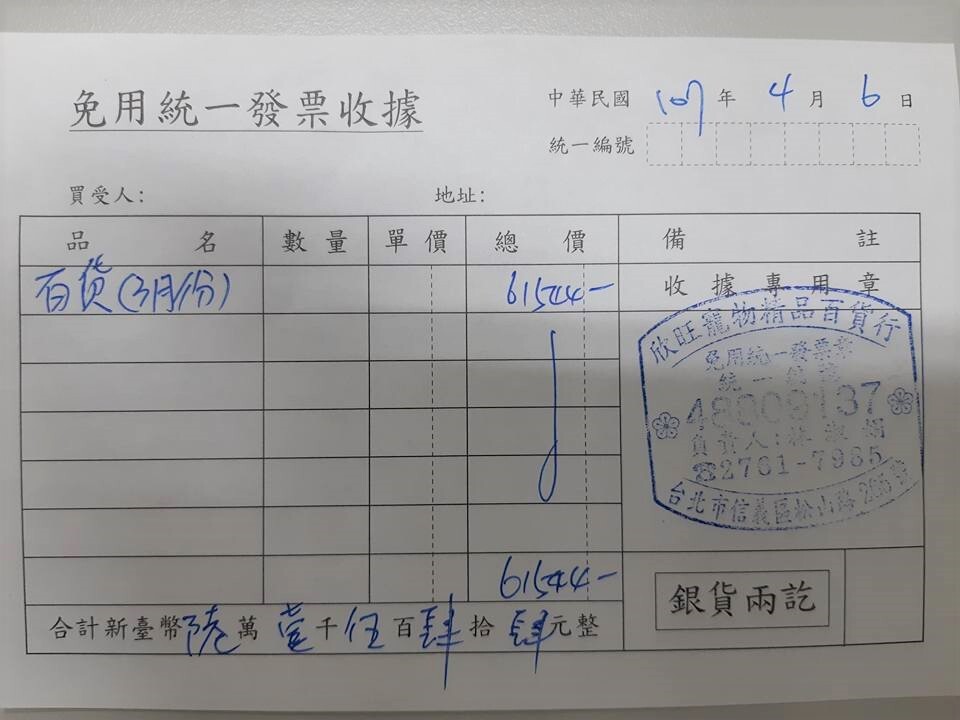 免用統一發票收據
中華民國 107 年 4 月 6 日
統一編號
買受人： 地址：
品名 數量 單價 總價 備註
百貨(3月份) 61544- 收據專用章
欣旺寵物精品百貨行
免用統一發票章
統一編號
48009137
負責人:林淑娟
☎2761-7965
台北市信義區松山路265號
61544-
銀貨兩訖
合計新臺幣陸萬壹千伍百肆拾肆元整